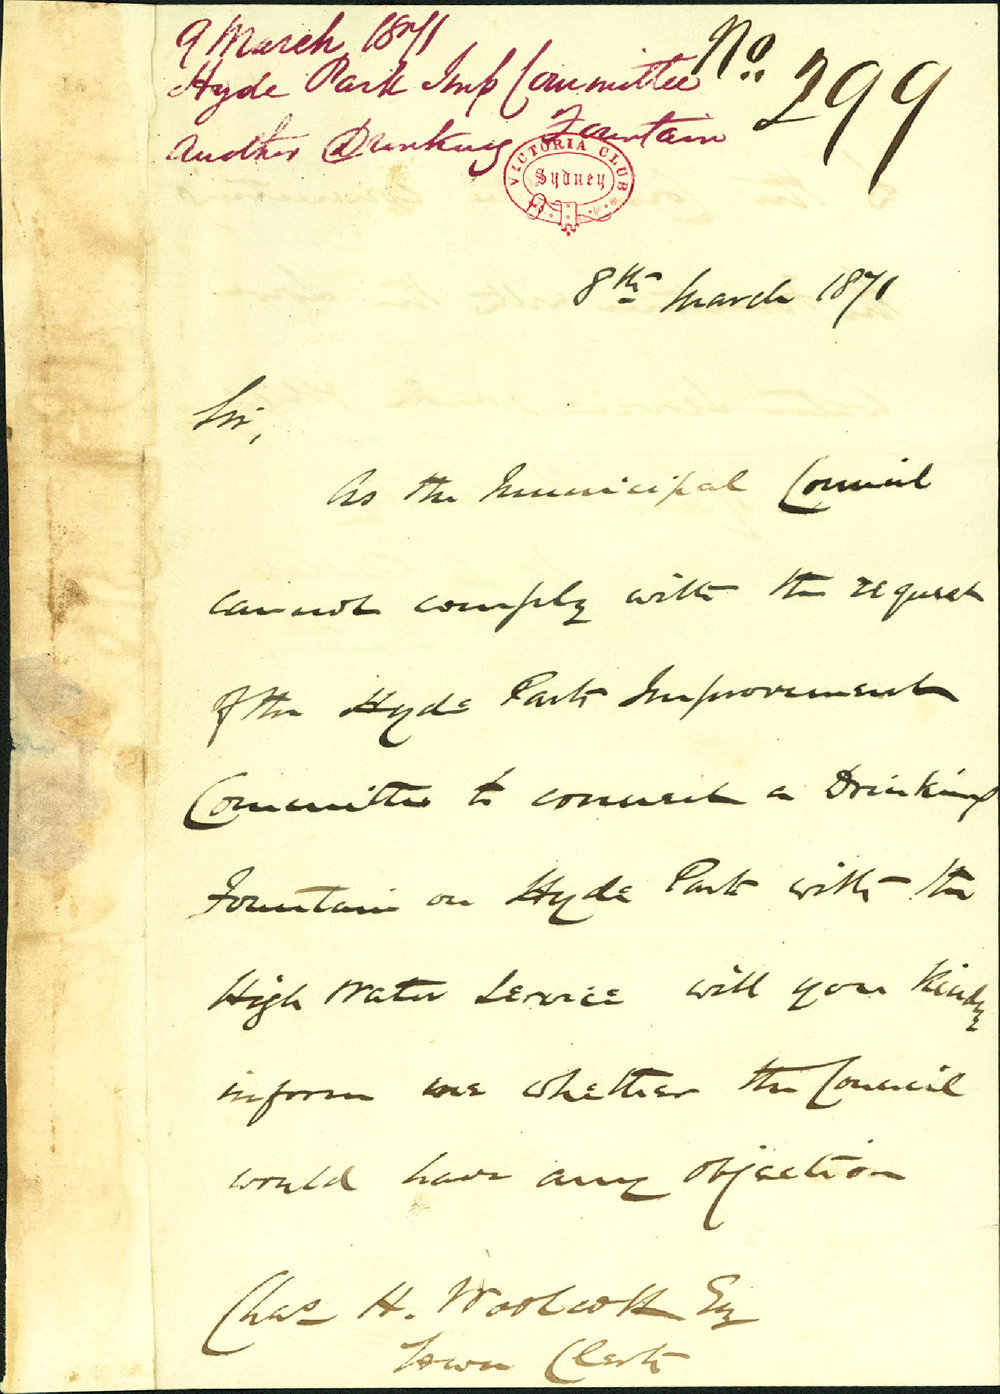 9 March 1871
Hyde Park Imp Committee
Another Drinking Fountain
No. 299
VICTORIA CLUB
Sydney
8th March 1871
Sir,
As the Municipal Council
cannot comply with the request
of the Hyde Park Improvement
Committee to connect a Drinking
Fountain on Hyde Park with the
High Water Service will you kindly
inform me whether the Council
would have any objection
Chas H. Woolcott Esq
Town Clerk